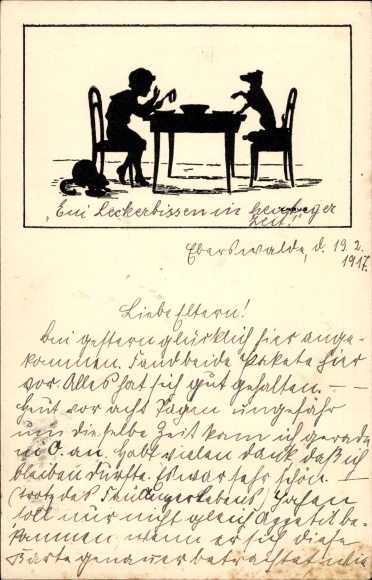 "Ein Leckerbissen in heutiger
Zeit!"
Eberswalde, d. 19.2.
1917.
Liebe Eltern!
Bin gestern glücklich hier ange-
kommen. Fand beide Pakete hier
vor. Alles hat sich gut gehalten. – –
Heut vor acht Tagen ungefähr
um dieselbe Zeit kam ich gerade
in O. an. Habt vielen Dank daß ich
bleiben durfte. Es war sehr schön. –
(trotz des
soll nur nicht gleich Appetit be-
kommen wenn er sich diese
Karte genauer betrachtet